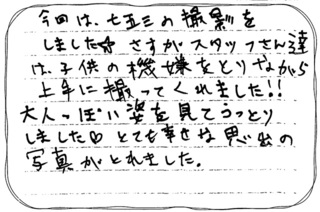 今回は、七五三の撮影を
しました☆ さすがスタッフさん達
は、子供の機嫌をとりながら
上手に撮ってくれました!!
大人っぽい姿を見てうっとり
しました♡ とても幸せな思い出の
写真がとれました。